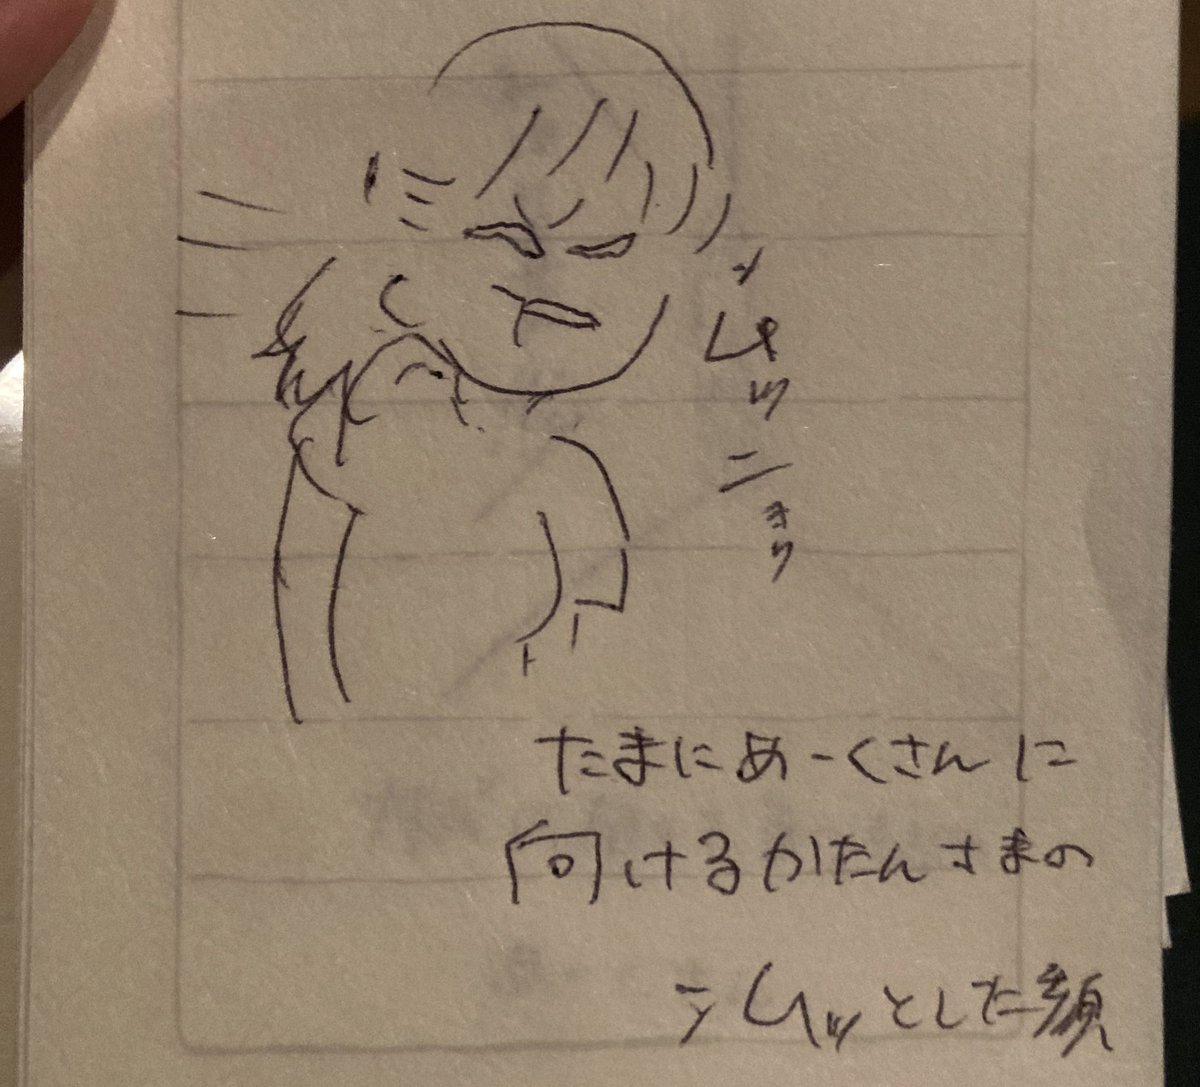 ムッニョッ
たまにあーくさんに
向けるかたんさまの
ンムッとした顔